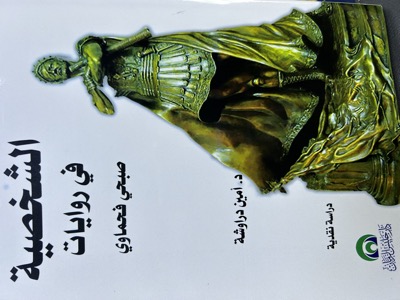 الشخصية
في روايات
صبحي فحماوي
د. أمين دراوشة
دراسة نقدية